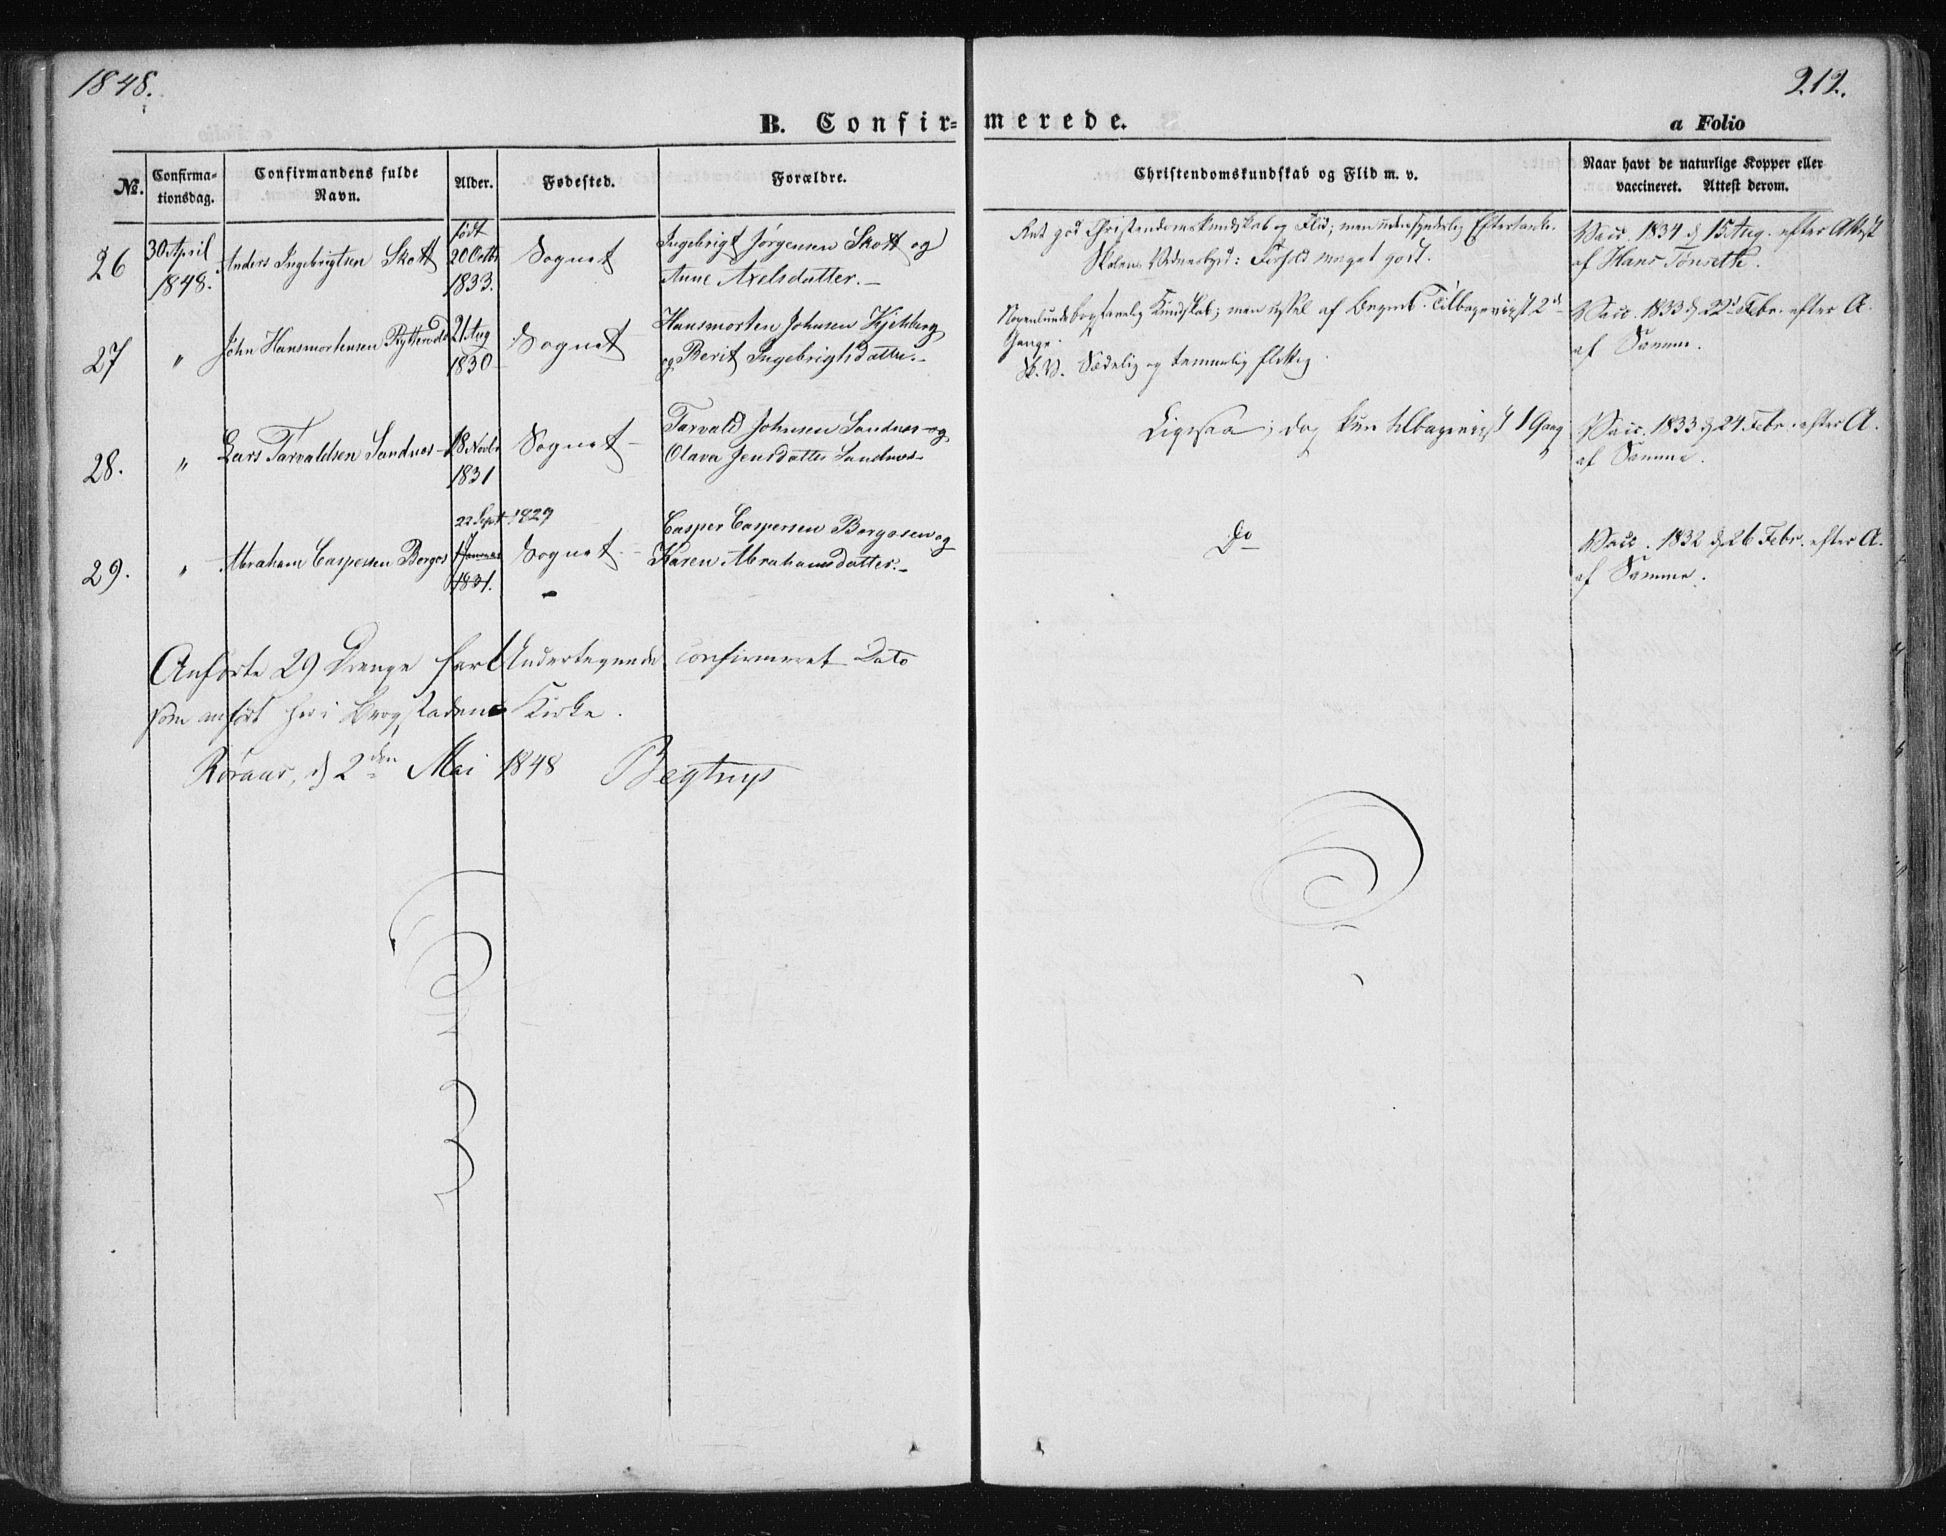 1848.
212.
B. Confir=
merede.
a Folio
No.
Confirma-
tionsdag.
Confirmandens fulde
Navn.
Alder.
Fødested.
Forældre.
Christendomskundskab og Flid m. v.
Naar havt de naturlige Kopper eller
vaccineret. Attest derom.
26
30 April
1848.
Anders Ingebrigtsen Skott
født
20 Octbr
1833.
Sognet
Ingebrigt Jørgensen Skott og
Anne Axelsdatter.
god Christendomskundskab og Flid; men uden synderlig Eftertanke.
Skolens Vidnesbyrd: Forhold meget godt.
Vacc. 1834 d 15 Aug. efter Attest
af Hans Tønseth.
27
"
John Hansmortensen
21 Aug
1830
Sognet
Hansmorten Johnsen Kjelsberg
og Berit Ingebrigtsdatter.
Nogenlunde Kundskab; men af Begreb. Tilbageviist 2de
Gange.
Sk. V. Sædelig og temmelig flittig.
Vacc. 1833 d 22d Febr. efter A.
af Samme.
28.
"
Lars Tarvaldsen Sandnes
18 Novbr
1831
Sognet
Tarvald Johnsen Sandnes og
Olava Jensdatter Sandnes
Ligesaa; dog kun tilbageviist 1 Gang
Vacc. 1833 d 24 Febr. efter A.
af Samme.
29.
"
Abraham Caspersen Borgos
22 Sept 1829
1831.
Sognet
Casper Caspersen Borgosen og
Karen Abrahamsdatter.
Do
Vacc. 1832 d 26 Febr. efter A.
af Samme.
Anførte 29 Drenge har Undertegnede confirmeret Dato
som anført her i Bergstadens Kirke.
Røraas, d 2den Mai 1848 Begtrup